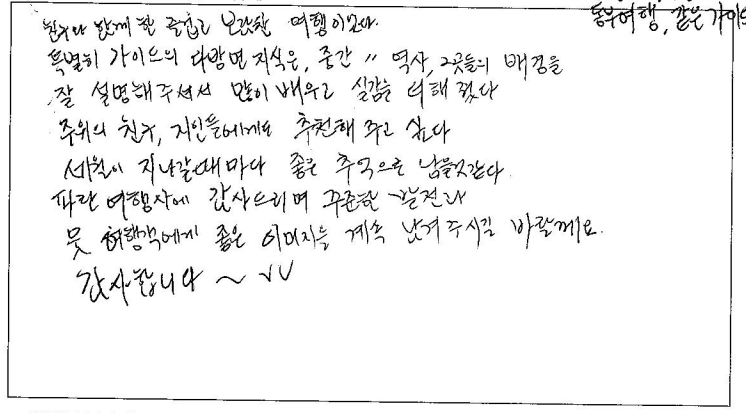 동부여행, 같은 가이드
친구와 함께 한 즐겁고 보람찬 여행이었다.
특별히 가이드의 다방면 지식은, 중간 〃 역사, 그곳들의 배경을
잘 설명해주셔서 많이 배우고 실감을 더해 줬다
주위의 친구, 지인들에게도 추천해 주고 싶다
세월이 지나갈때마다 좋은 추억으로 남을것같다.
파란 여행사에 감사드리며 꾸준한 발전과
뭇 여행객에게 좋은 이미지를 계속 남겨주시길 바랄께요.
감사합니다 ~